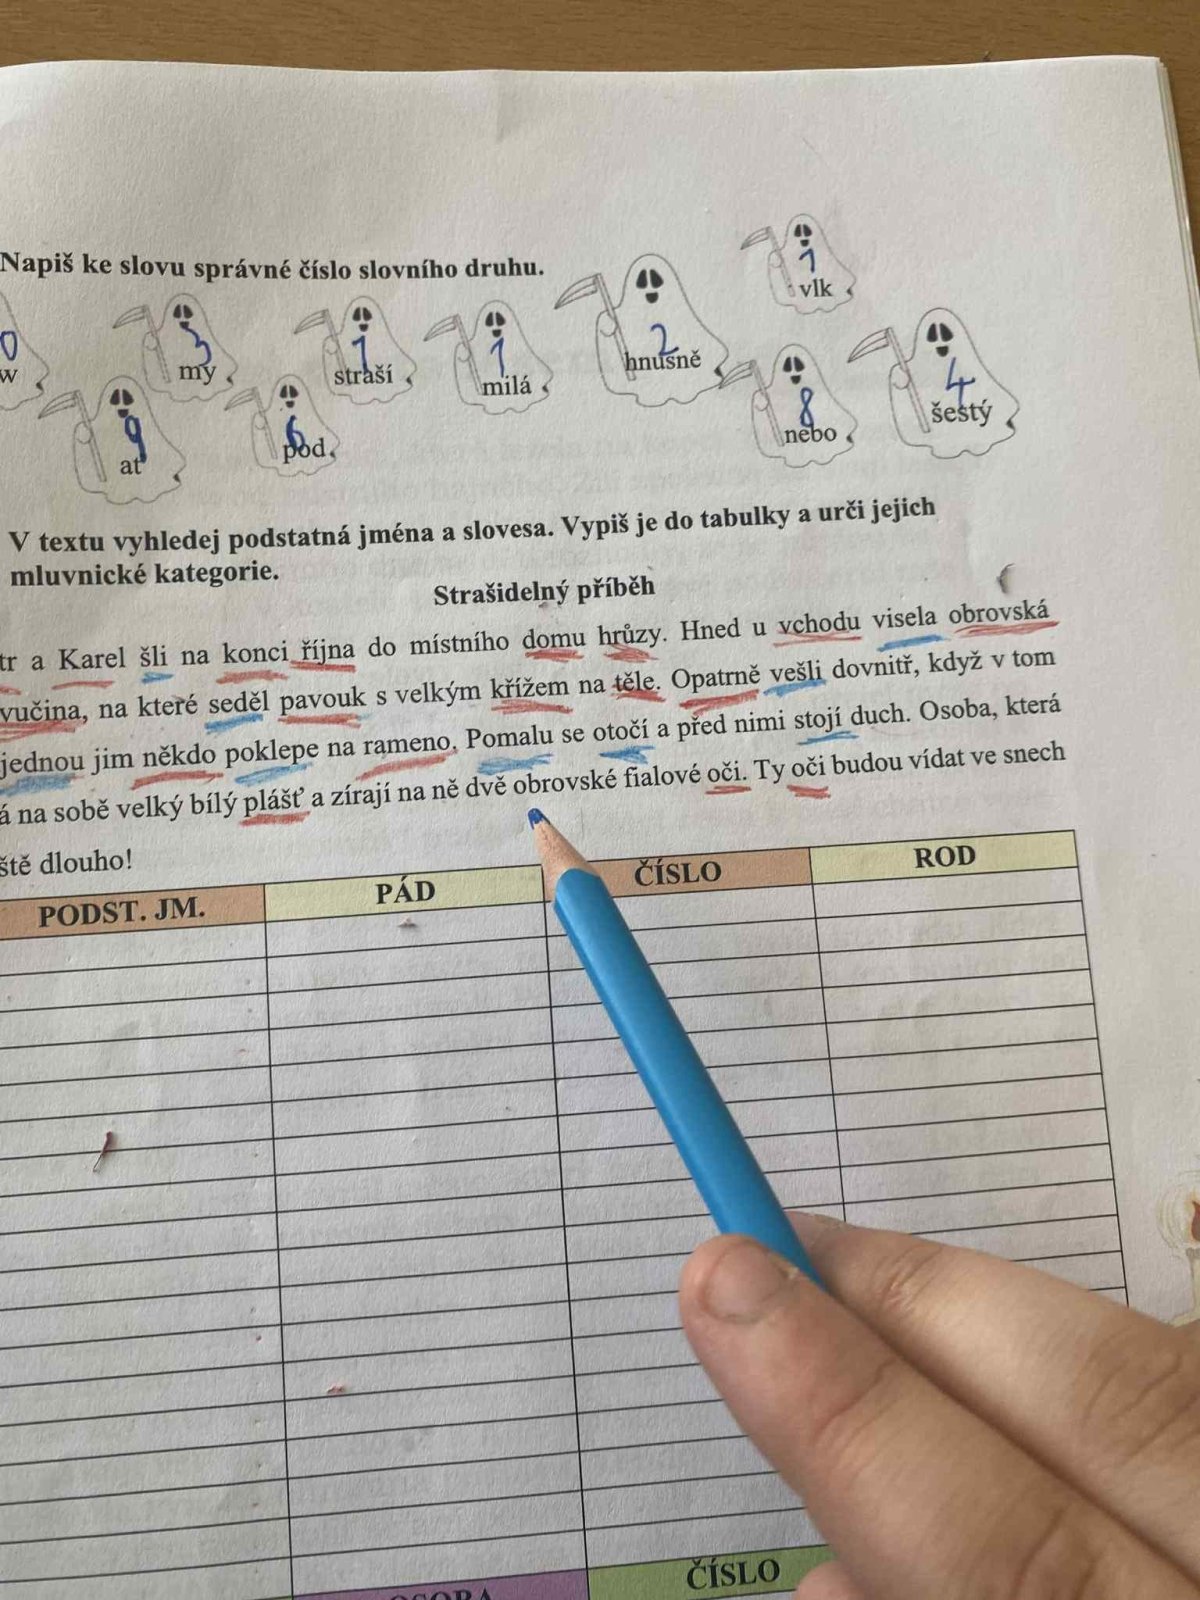 Napiš ke slovu správné číslo slovního druhu.
0 3 1 1 2 1
w my straší milá hnusně vlk
9 6 8 4
ať pod nebo šestý
V textu vyhledej podstatná jména a slovesa. Vypiš je do tabulky a urči jejich
mluvnické kategorie.
Strašidelný příběh
tr a Karel šli na konci října do místního domu hrůzy. Hned u vchodu visela obrovská
vučina, na které seděl pavouk s velkým křížem na těle. Opatrně vešli dovnitř, když v tom
jednou jim někdo poklepe na rameno. Pomalu se otočí a před nimi stojí duch. Osoba, která
á na sobě velký bílý plášť a zírají na ně dvě obrovské fialové oči. Ty oči budou vídat ve snech
ště dlouho!
PODST. JM. PÁD ČÍSLO ROD
OSOBA ČÍSLO